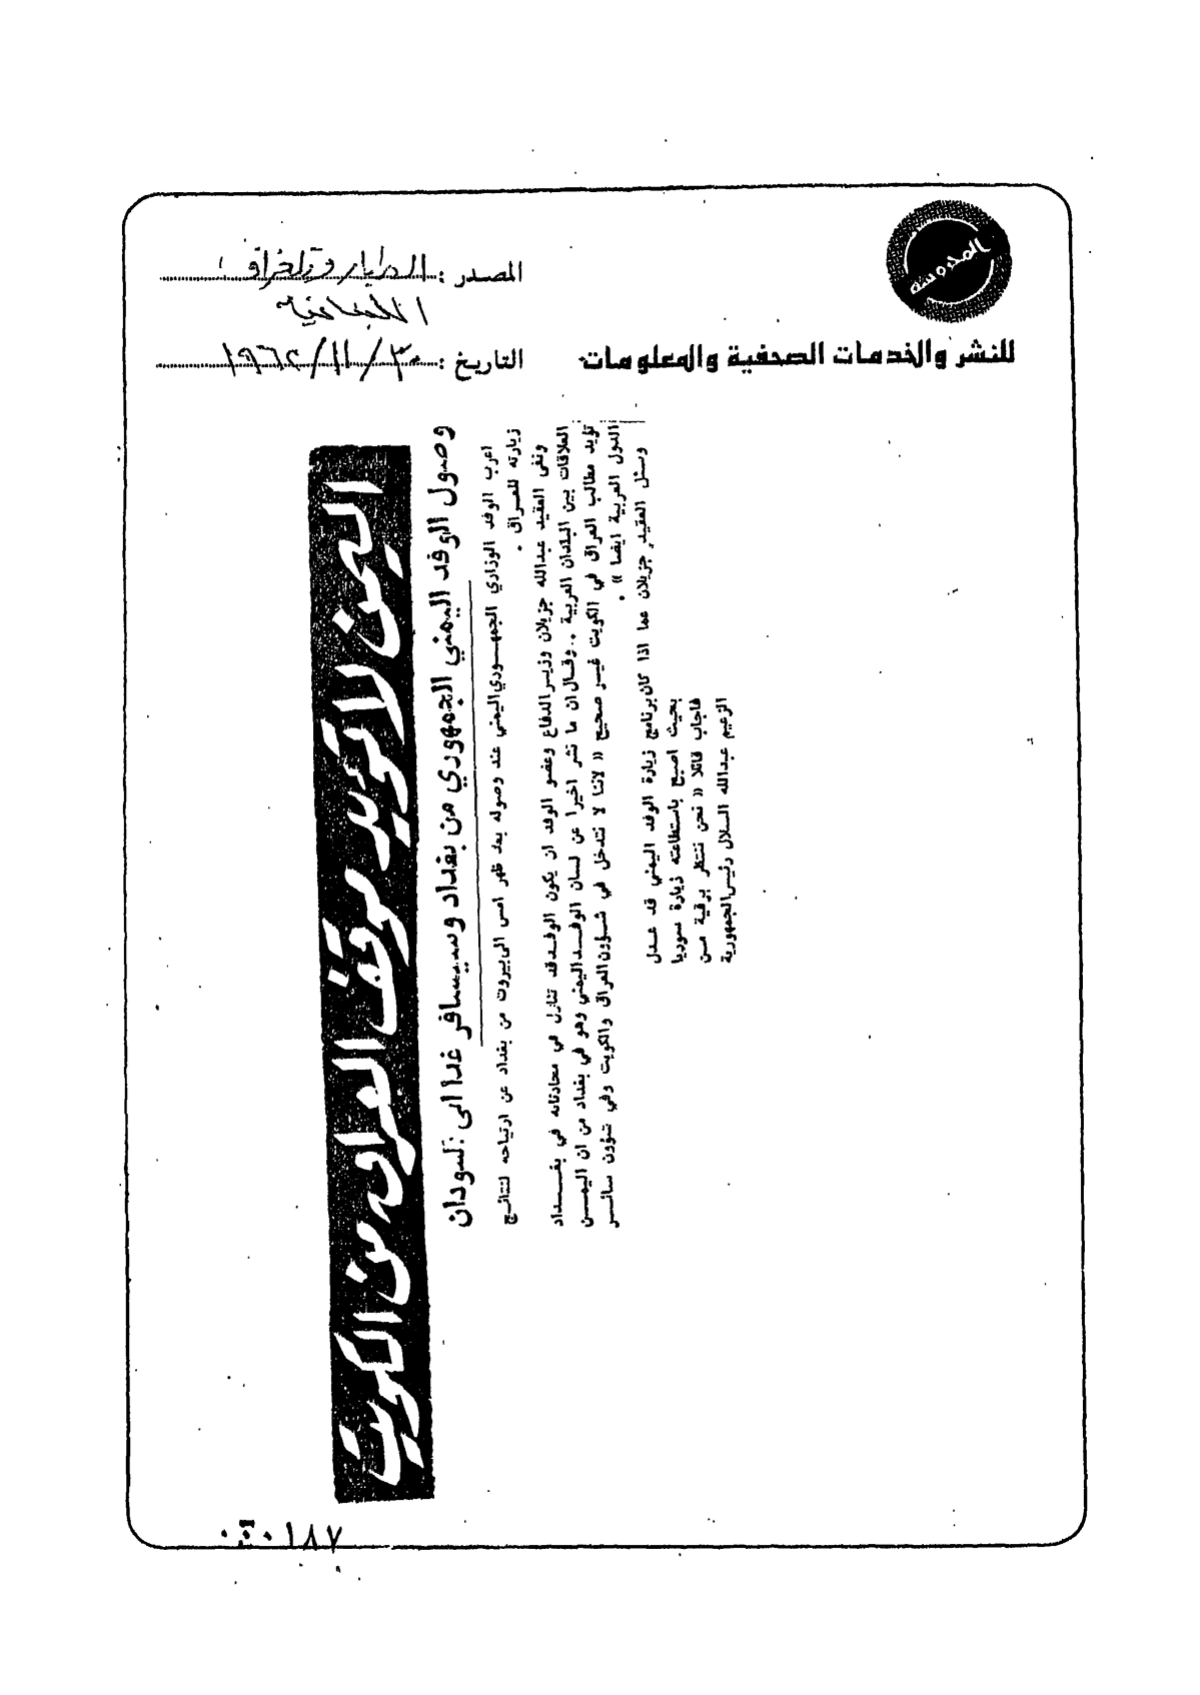 المحروسة
للنشر والخدمات الصحفية والمعلومات
المصدر :
اللبنانية
التاريخ : ٣٠/١١/١٩٦٢
اليمن لا تؤيد موقف العراق من الكويت
وصول الوفد اليمني الجمهوري من بغداد وسيسافر غدا الى السودان
اعرب الوفد الوزاري الجمهوري اليمني عند وصوله بعد ظهر امس الى بيروت من بغداد عن ارتياحه لنتائج
زيارته للعراق .
ونفى العقيد عبدالله جزيلان وزير الدفاع وعضو الوفد ان يكون الوفد قد تناول في محادثاته في بغداد
العلاقات بين البلدان العربية . وقال ان ما نشر اخيرا عن لسان الوفد اليمني وهو في بغداد من ان اليمن
تؤيد مطالب العراق في الكويت غير صحيح « لاننا لا نتدخل في شؤون العراق والكويت وفي شؤون سائر
الدول العربية ايضا » .
وسئل العقيد جزيلان عما اذا كان برنامج زيارة الوفد اليمني قد عدل
بحيث اصبح باستطاعته زيارة سوريا
فاجاب قائلا « نحن ننتظر برقية من
الزعيم عبدالله السلال رئيس الجمهورية